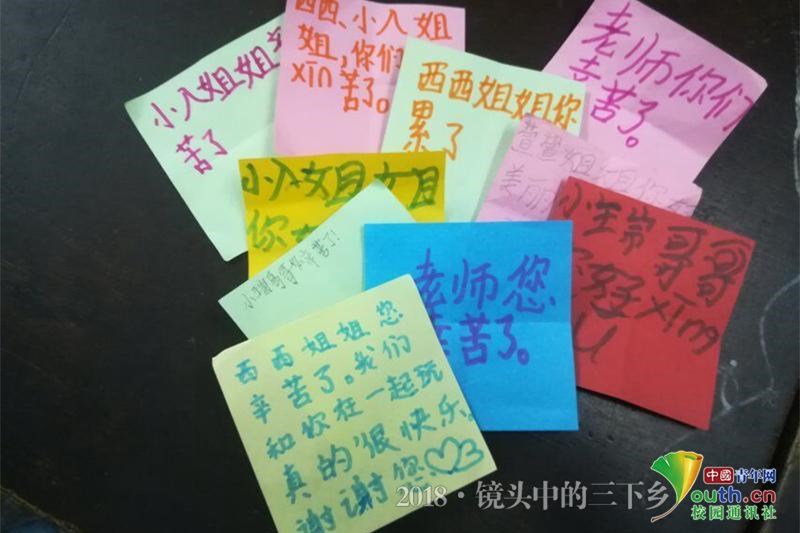 小入姐姐辛
苦了
西西、小入姐
姐,你们
xīn 苦了。
西西姐姐你
累了
老师你们
辛苦了。
萱萱姐姐你
美丽
小入姐姐
你
小瑞哥哥你辛苦了!
老师您
辛苦了。
哥哥
你好 xīng
U
西西姐姐您
辛苦了。我们
和你在一起玩
真的很快乐。
谢谢您
2018·镜头中的三下乡
中国青年网
Youth.cn
校园通讯社